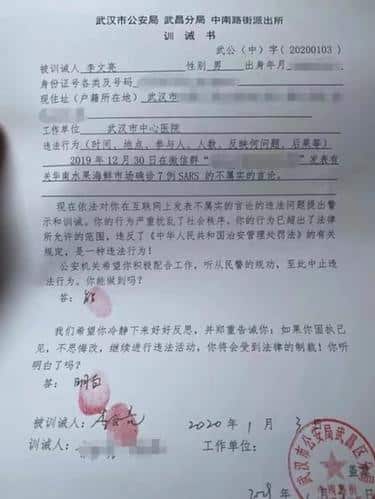 武汉市公安局 武昌分局 中南路街派出所
训 诫 书
武公（中）字（20200103）
被训诫人 李文亮 性别 男 出生年月
身份证号各类及号码
现住址（户籍所在地） 武汉市
工作单位 武汉市中心医院
违法行为（时间、地点、参与人、人数、反映何问题、后果等）
2019年12月30日在微信群“ ”发表有
关华南水果海鲜市场确诊7例SARS的不属实的言论。
现在依法对你在互联网上发表不属实的言论的违法问题提出警
示和训诫。你的行为严重扰乱了社会秩序。你的行为已超出了法律
所允许的范围，违反了《中华人民共和国治安管理处罚法》的有关
规定，是一种违法行为！
公安机关希望你积极配合工作，听从民警的规劝，至此中止违
法行为。你能做到吗？
答：能
我们希望你冷静下来好好反思，并郑重告诫你：如果你固执已
见，不思悔改，继续进行违法活动，你将会受到法律的制裁！你听
明白了吗？
答：明白
被训诫人：李文亮 2020年1月3日
训诫人： 工作单位：
武汉市公安局武昌区